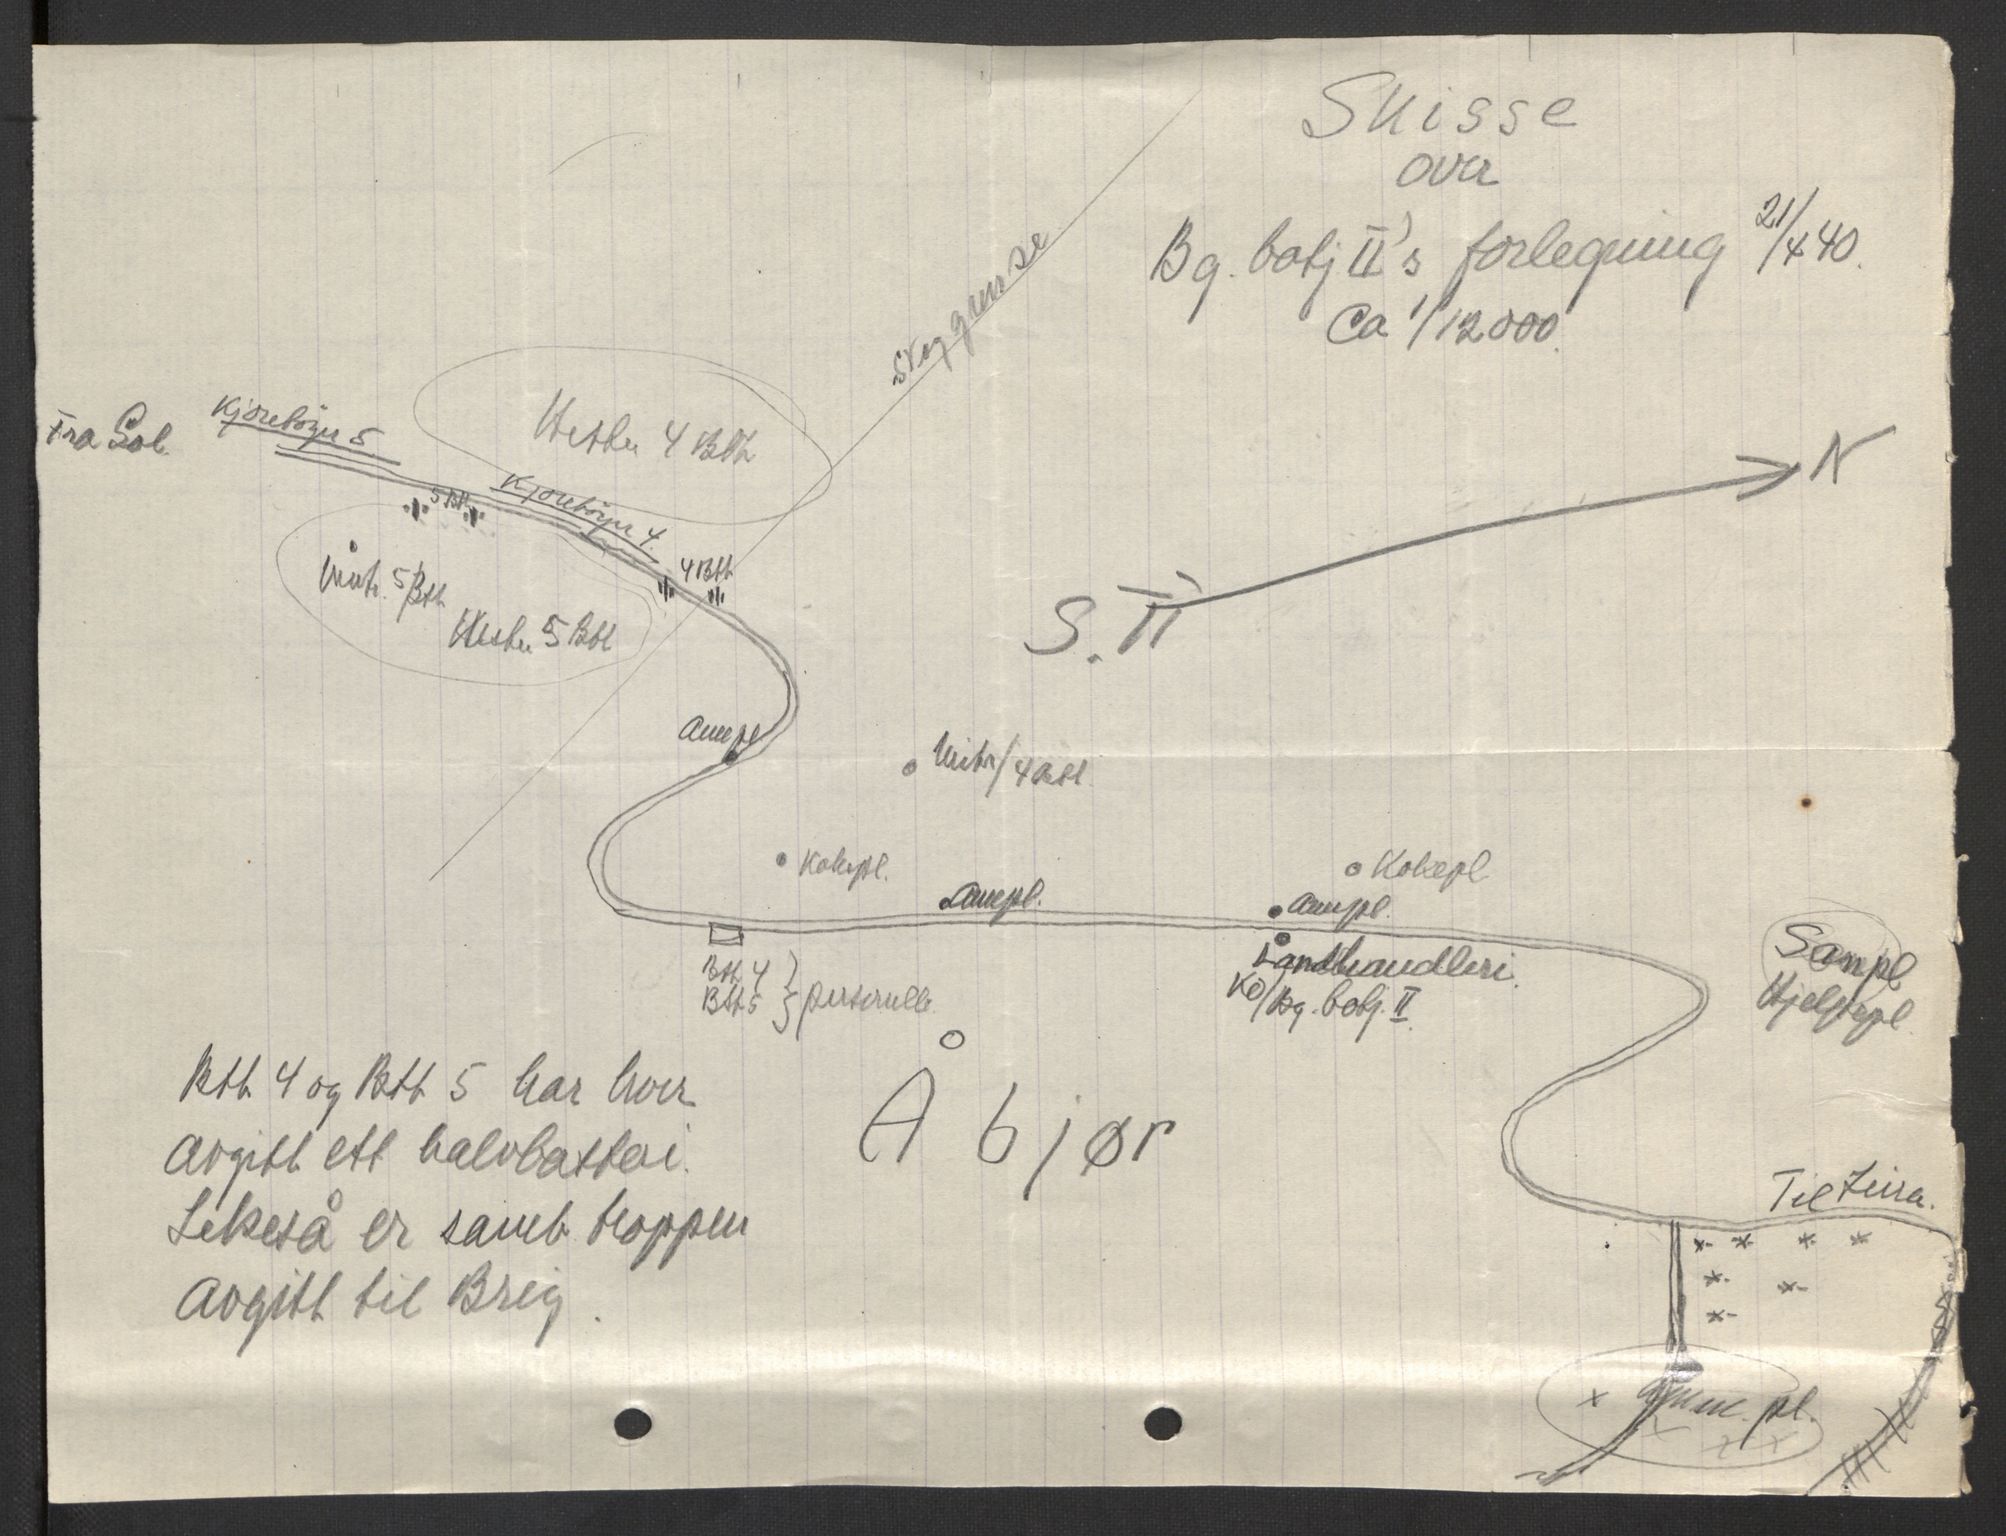 Skisse
over
Bg. batj II's forlegning 21/4 40.
Ca 1/12000.
Skoggrense
Fra Sol.
Kjørebøyer 5
Hester 4 Btt
5 Btt
Kjørebøyer 4.
4 Btt
Mitr. 5/Btt
Hester 5 Btt
N
S.
Ampl
Mitr/4 Btt.
Kokepl.
Ampl.
Kokepl
Ampl.
Btt 4
Btt 5
personell
Landhandleri.
Ko/Bg. batj. II.
Sampl
Hjelpepl.
Åbjør
Btt 4 og Btt 5 har hver
avgitt ett halvbatteri.
Likeså er samb. troppen
avgitt til Brig.
Til Leira.
Amm. pl.